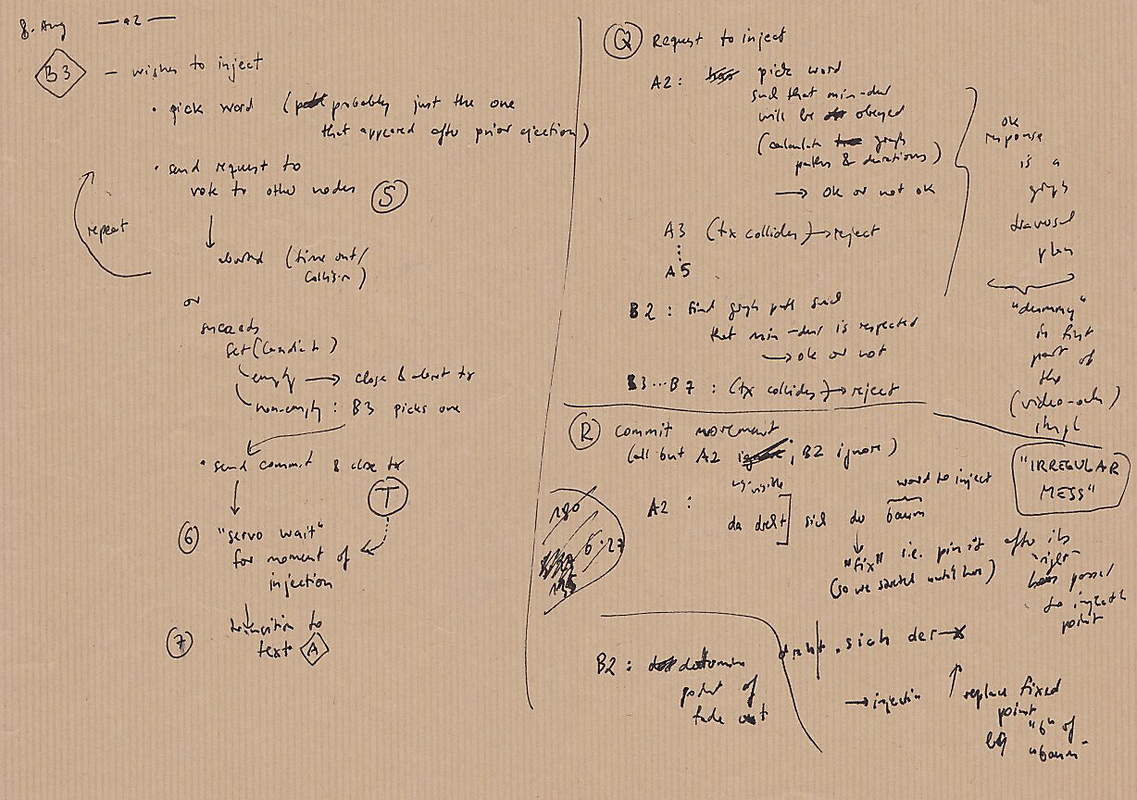 8. Aug — a2 —
B3 — wishes to inject
• pick word (probably just the one
that appeared after prior ejection)
• send request to
vote to other nodes S
repeat
aborted (time out/
collision)
or
succeeds
Set(Candidate)
empty → close & abort tx
non-empty: B3 picks one
• send commit & close tx
T
6 "servo wait"
for moment of
injection
7 transition to
text A
Q Request to inject
A2: pick word
such that min-dur
will be obeyed
(calculate graph
paths & durations)
→ ok or not ok
A3 (tx collides) → reject
A5
B2: find graph path such
that min-dur is respected
→ ok or not
B3...B7: (tx collides) → reject
ok
response
is a
graph
traversal
plan
"dummy"
in first
part of
the
(video-only)
impl
R Commit movement
(all but A2, B2 ignore)
"IRREGULAR
MESS"
invisible
word to inject
A2:
da dreht sich der baum
"fix" i.e. pin it after its
(so we stretch until here)
"right"
has passed
the injection
point
180
6:27
B2: determine
point of
fade out
dreht. sich der X
→ injection
replace fixed
point
by "b" of
"baum"